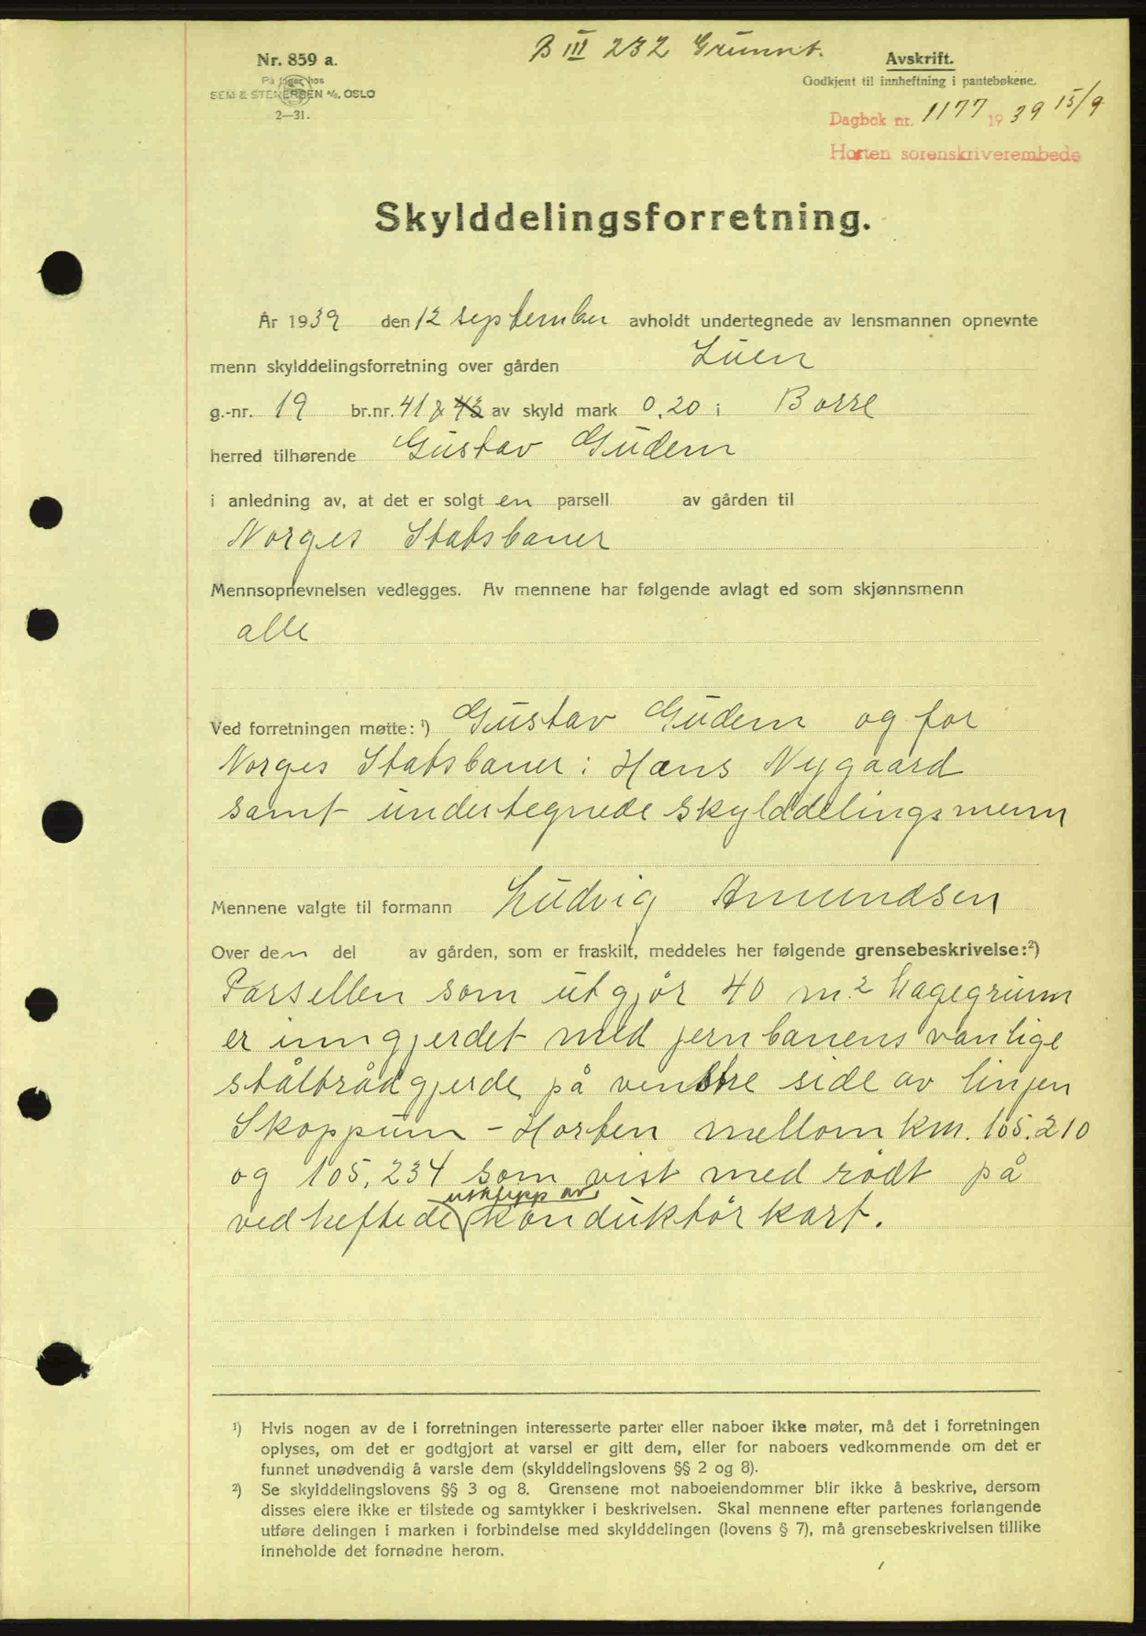 B III 232 Grunnt.
Nr. 859 a.
På lager hos
SEM & STENERSEN A/S, OSLO
2—31.
Avskrift.
Godkjent til innheftning i pantebøkene.
Dagbok nr. 1177 1939 15/9
Horten sorenskriverembede
Skylddelingsforretning.
År 1939 den 12 september avholdt undertegnede av lensmannen opnevnte
menn skylddelingsforretning over gården Luen
g.-nr. 19 br.nr. 41 & 43 av skyld mark 0,20 i Borre
herred tilhørende Gustav Gudem
i anledning av, at det er solgt en parsell av gården til
Norges Statsbaner
Mennsopnevnelsen vedlegges. Av mennene har følgende avlagt ed som skjønnsmenn
alle
Ved forretningen møtte: ¹) Gustav Gudem og for
Norges Statsbaner : Hans Nygaard
samt undertegnede skylddelingsmenn
Mennene valgte til formann Ludvig Amundsen
Over den del av gården, som er fraskilt, meddeles her følgende grensebeskrivelse:²)
Parsellen som utgjør 40 m² hagegrunn
er inngjerdet med jernbanens vanlige
ståltrådgjerde på venstre side av linjen
Skoppum - Horten mellom km. 105.210
og 105,234 som vist med rødt på
utklipp av
vedheftede konduktørkart.
¹) Hvis nogen av de i forretningen interesserte parter eller naboer ikke møter, må det i forretningen
oplyses, om det er godtgjort at varsel er gitt dem, eller for naboers vedkommende om det er
funnet unødvendig å varsle dem (skylddelingslovens §§ 2 og 8).
²) Se skylddelingslovens §§ 3 og 8. Grensene mot naboeiendommer blir ikke å beskrive, dersom
disses eiere ikke er tilstede og samtykker i beskrivelsen. Skal mennene efter partenes forlangende
utføre delingen i marken i forbindelse med skylddelingen (lovens § 7), må grensebeskrivelsen tillike
inneholde det fornødne herom.